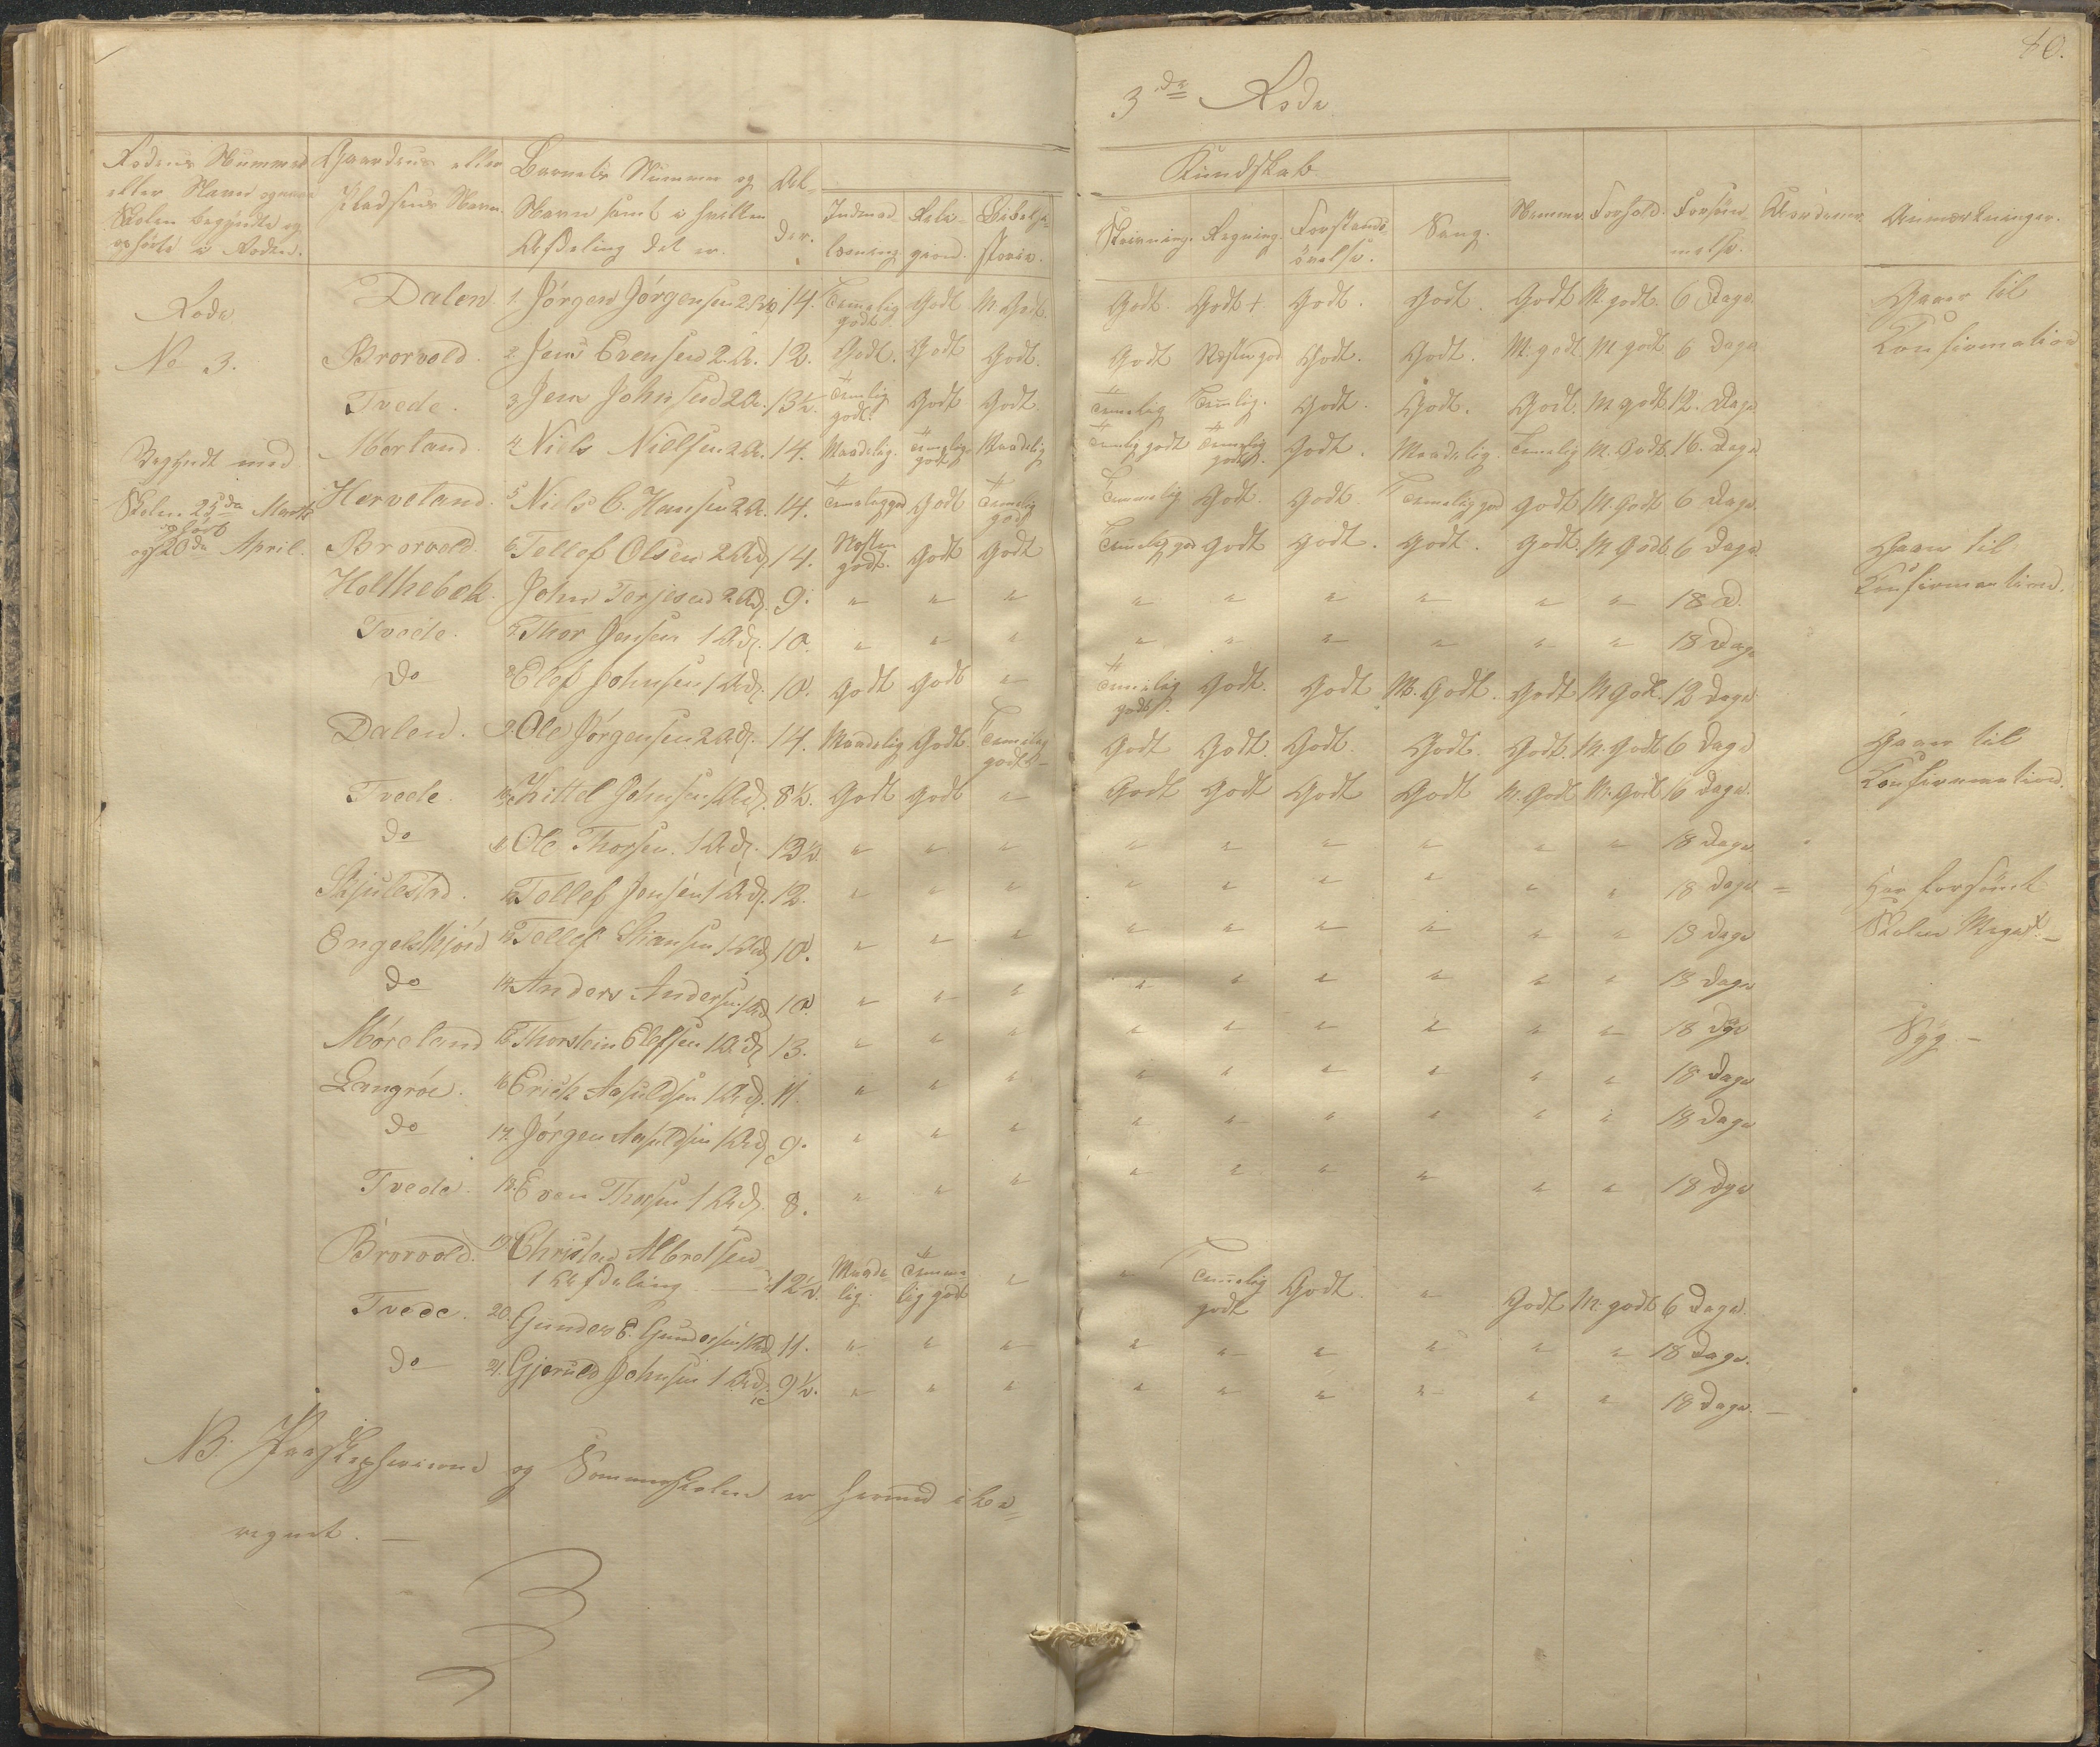 40.
3de Rode
Rodens Nummer eller Navn og naar Skolen begyndte og ophørte i Roden.
Gaardens eller Pladsens Navn.
Barnets Nummer og Navn samt i hvilken Afdeling det er.
Alder.
Kundskab
Indenadlæsning. Religion. Bibelhistorie. Skrivning. Regning. Forstandsøvelse. Sang. Nemme. Forhold. Forsømmelse. Anmærkninger.
Rode
No 3.
Begyndt med Skolen 25de Marts og ophört 20de April.
Dalen. 1. Jørgen Jørgensen 2 Afd 14. Temmelig godt. Godt M. Godt. Godt. Godt + Godt. Godt. Godt M. godt. 6 Dage. Gaaer til Konfirmation
Brorvold. 2. Jens Evensen 2. A. 12. Godt. Godt Godt. Godt Næsten god Godt. Godt. M. godt M. godt 6 Dage
Tvede. 3 Jens Johnsen 2 A. 13½. Temlig godt. Godt Godt. Temelig Temlig. Godt. Godt. Godt. M. godt. 12. Dage
Mørland. 4 Niels Nielsen 2 A. 14. Maadelig. Temelig godt Maadelig Temlig godt Temmelig godt. Godt. Maadelig. Temelig M. Godt. 16. Dage
Herveland. 5 Niels C. Hansen 2 A. 14. Temelig god Godt Temelig godt Temmelig Godt. Godt. Temelig god Godt M. Godt 6 Dage
Brorvold 6 Tellef Olsen 2 Afd 14. Næsten godt. Godt Godt Temelig god Godt Godt. Godt. Godt. M. Godt 6 Dage Gaaer til Konfirmation.
Holthebek. John Terjesen 2 Afd. 9. " " " " " " " " " 18 D.
Tvede. 7 Thor Jensen 1 Afd. 10. " " " " " " " " " 18 Dage
do 8 Elef Johnsen 1 Afd. 10. Godt Godt " Temelig godt. Godt. Godt M. Godt. Godt M Godt. 12 Dage
Dalen. 9. Ole Jørgensen 2 Afd. 14. Maadelig Godt. Temelig godt Godt Godt. Godt. Godt. Godt. M. Godt 6 Dage Gaaer til Konfirmation.
Tvede. 10. Kittel Johnsen 1 Afd. 8½. Godt Godt " Godt Godt Godt Godt M. Godt M. Godt 6 Dage.
do 11 Ole Thorsen. 1 Afd. 13½. " " " " " " " " " 18 Dage
Skjulestad. 12 Tellef Jensen 1 Afd. 12. " " " " " " " " " 18 Dage Har forsömt Skolen Meget.
Engelskjøn 13 Tellef Stiansen 1 Afd 10. " " " " " " " " " 18 Dage
do 14. Anders Andersen 1 Afd 10. " " " " " " " " " 18 Dage
Møreland 15 Thorstein Elefsen 1 Afd 13. " " " " " " " " " 18 Dge Syg.
Langrøe. 16 Erich Aasuldsen 1 Afd. 11. " " " " " " " " " 18 Dage
do 17. Jørgen Aasuldsen 1 Afd 9. " " " " " " " " " 18 Dage
Tvede. 18. Even Thorsen 1 Afd. 8. " " " " " " " " " 18 Dge
Brorvold. 19. Christen Albretsen 1 Afdeling 12½. Maadelig. Temmelig godt " " Temelig godt Godt. " Godt M. godt 6 Dage.
Tvede. 20. Gunder E. Gundersen 1 Afd 11. " " " " " " " " " 18 Dage.
do 21. Gjeruld Johnsen 1 Afd. 9½. " " " " " " " " " 18 Dage.
NB. og Sommerskolen er hermed ikke regnet.